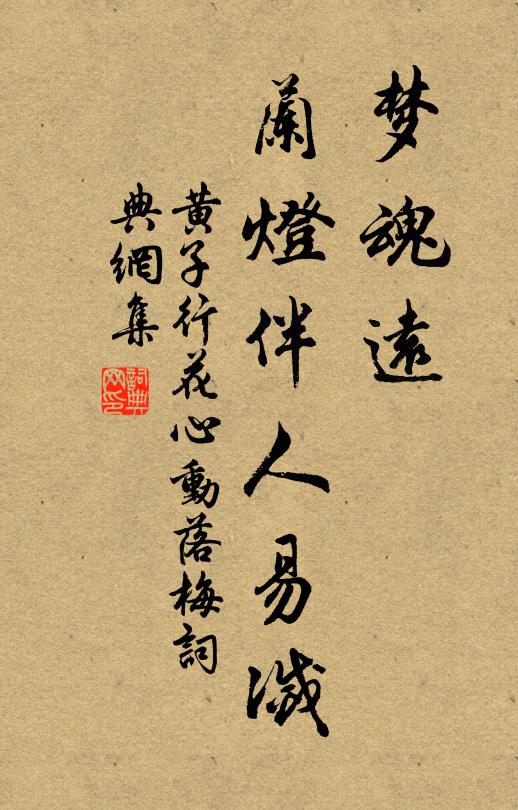 梦魂遠
蘭燈伴人易滅
黄子行花心動落梅詞
典網集
詞典網印